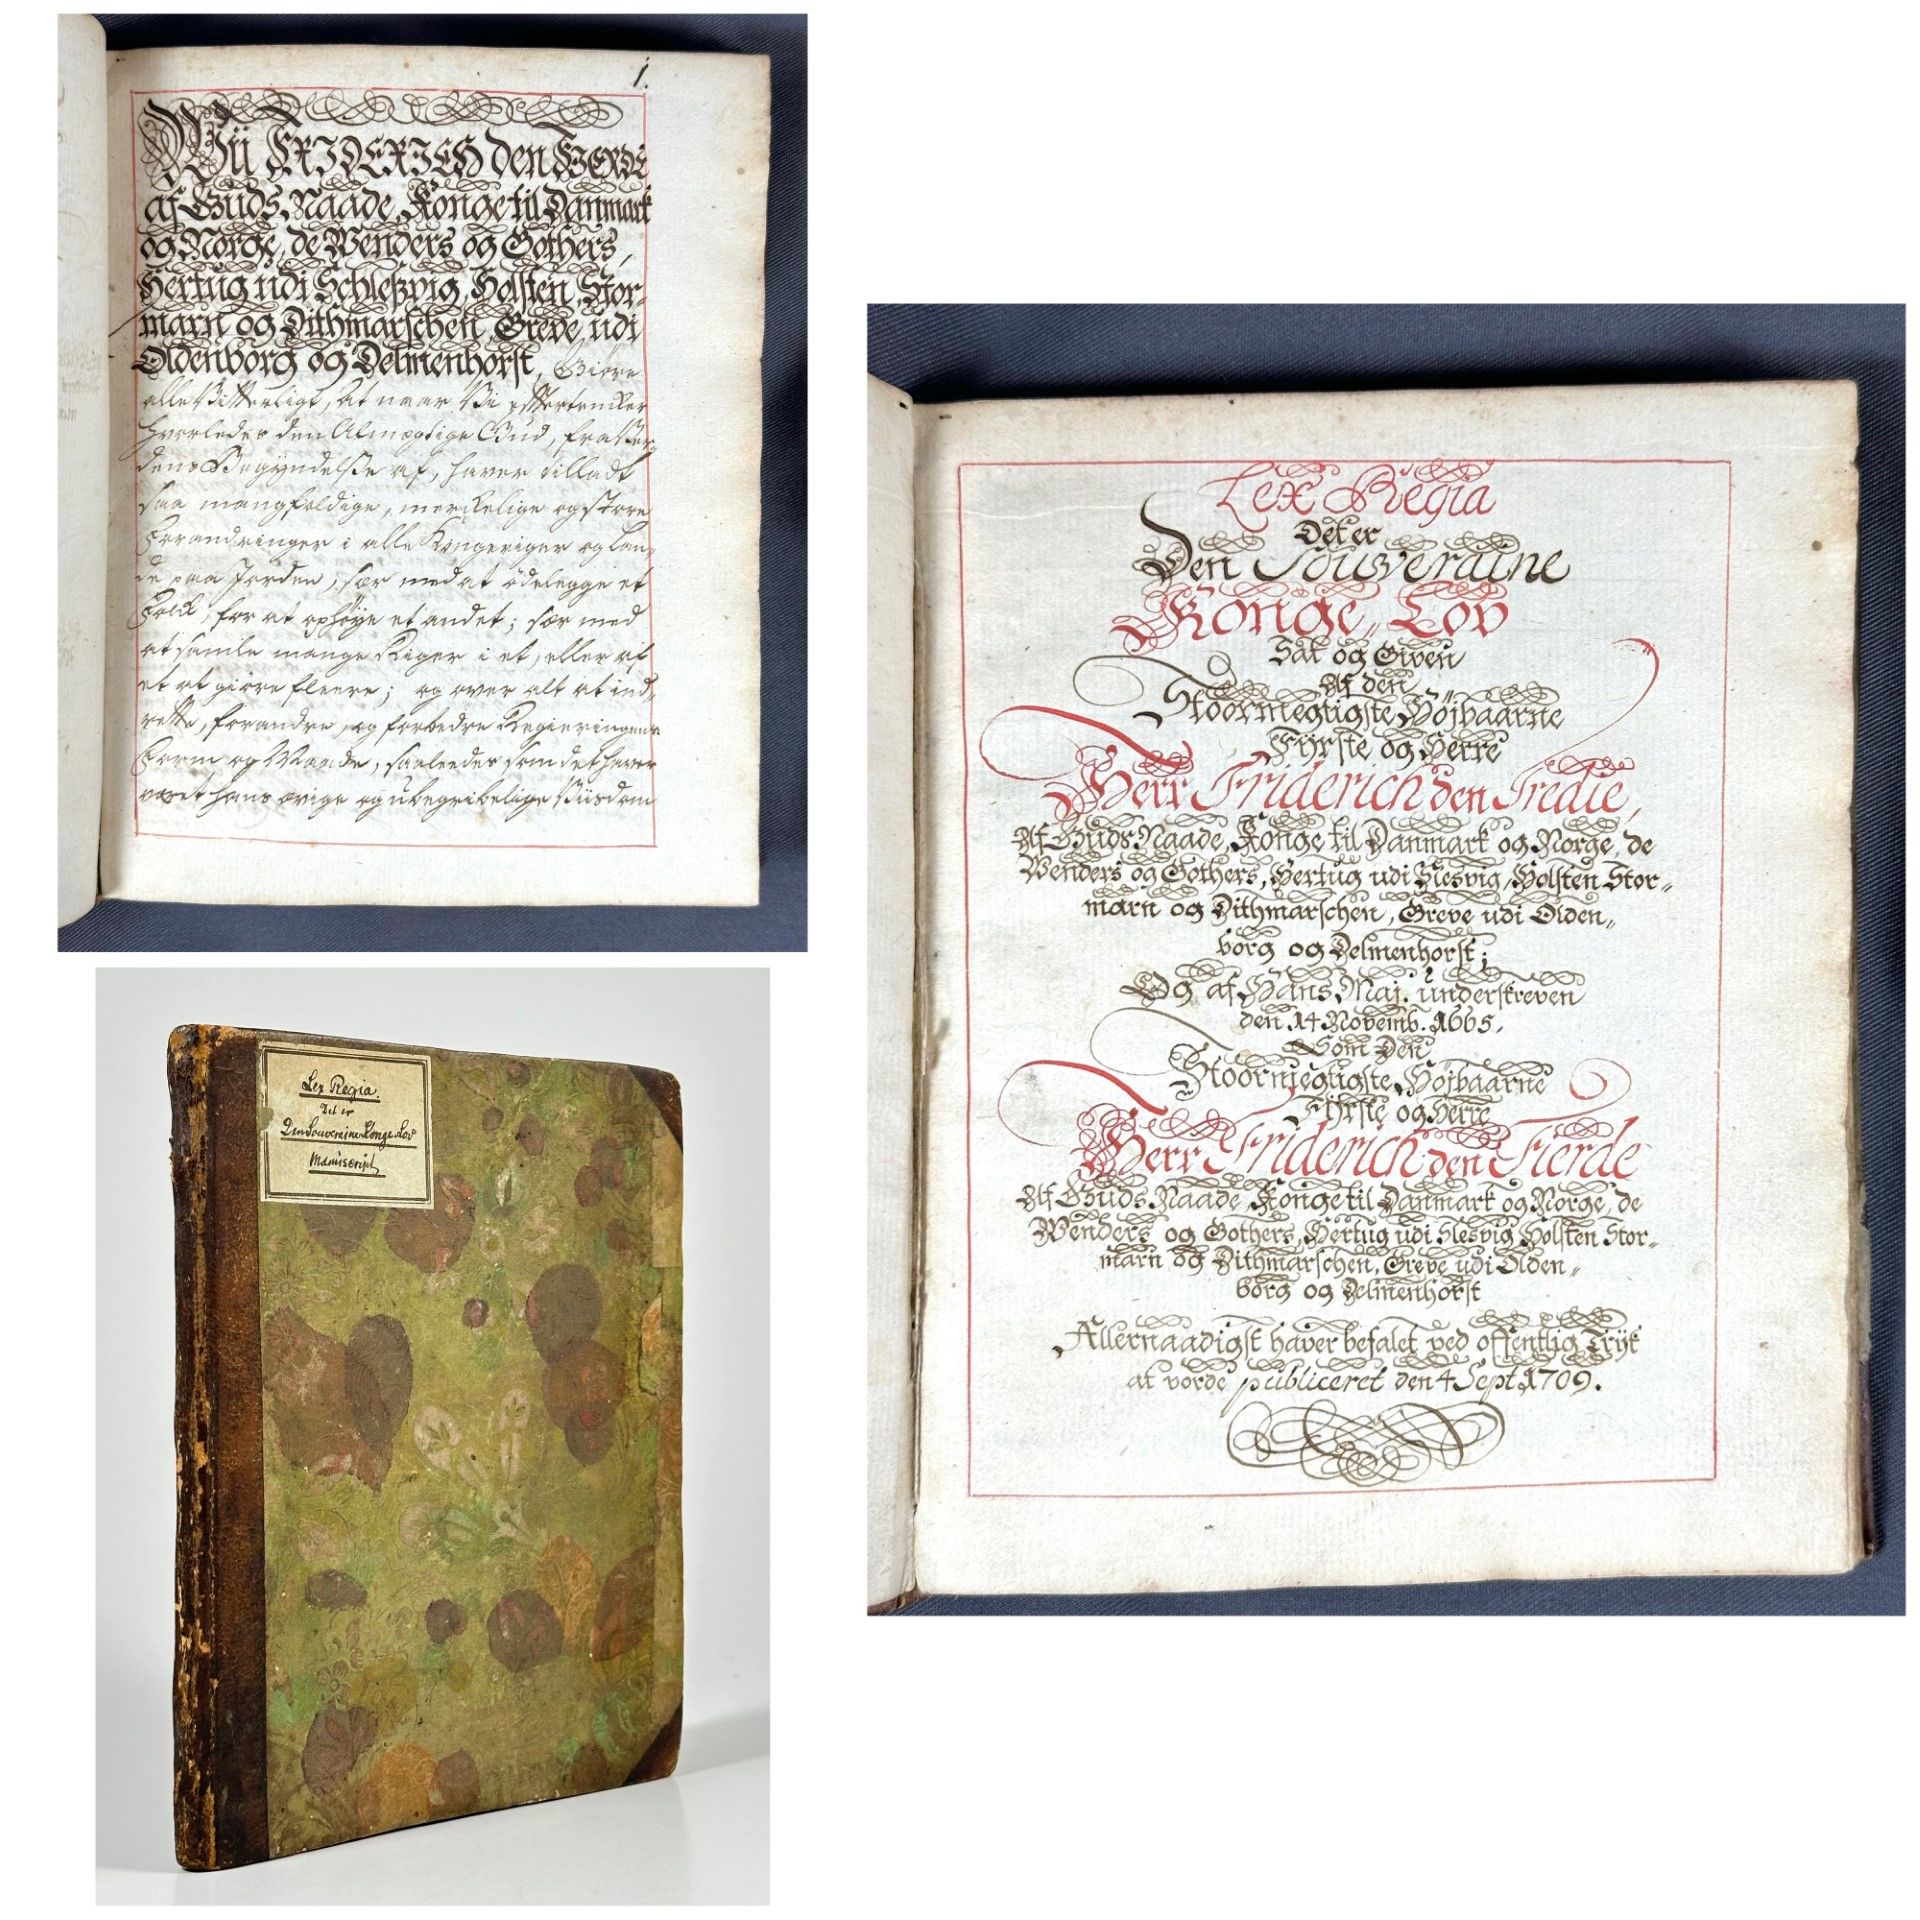 1.
Wii FRIDERICH den FIERDE
af Guds Naade, Konge til Danmark
og Norge, de Wenders og Gothers,
Hertug udi Schleßvig, Holsten, Stor-
marn og Dithmarschen, Greve udi
Oldenborg og Delmenhorst, Giøre
alle Vitterligt, At naar Vi eftertencker
hvorledes den Almægtige Gud, fra Ver-
dens Begyndelse af, haver tilladt
saa mangfoldige, merckelige og store
Forandringer i alle Kongeriger og Lan-
de paa Jorden, saa med at ødelegge et
Folck, for at ophøye et andet; saa med
at samle mange Riger i et, eller af
et at giøre fleere; og over alt at ind-
rette, forandre, og forbedre Regieringens
Form og Maade, saaledes som det haver
været hans ævige og ubegribelige Viisdom
Lex Regia.
Det er
Den Souveraine Konge Lov
Manuscript
Lex Regia
Det er
Den Souveraine
Konge„ Lov
Sat og Given
Af den
Stoormegtigste Højbaarne
Fyrste og Herre
Herr Friderich den Tredie,
Af Guds Naade, Konge til Danmark og Norge, de
Wenders og Gothers, Hertug udi Slesvig, Holsten Stor„
marn og Dithmarschen, Greve udi Olden„
borg og Delmenhorst;
Og af Hans Maj. underskreven
den 14 Novemb. 1665.
Som Den
Stoormegtigste, Højbaarne
Fyrste og Herre
Herr Friderich den Fierde
Af Guds Naade, Konge til Danmark og Norge, de
Wenders og Gothers, Hertug udi Slesvig Holsten Stor„
marn og Dithmarschen, Greve udi Olden„
borg og Delmenhorst
Allernaadigst haver befalet ved offentlig Tryk
at vorde publiceret den 4 Sept. 1709.